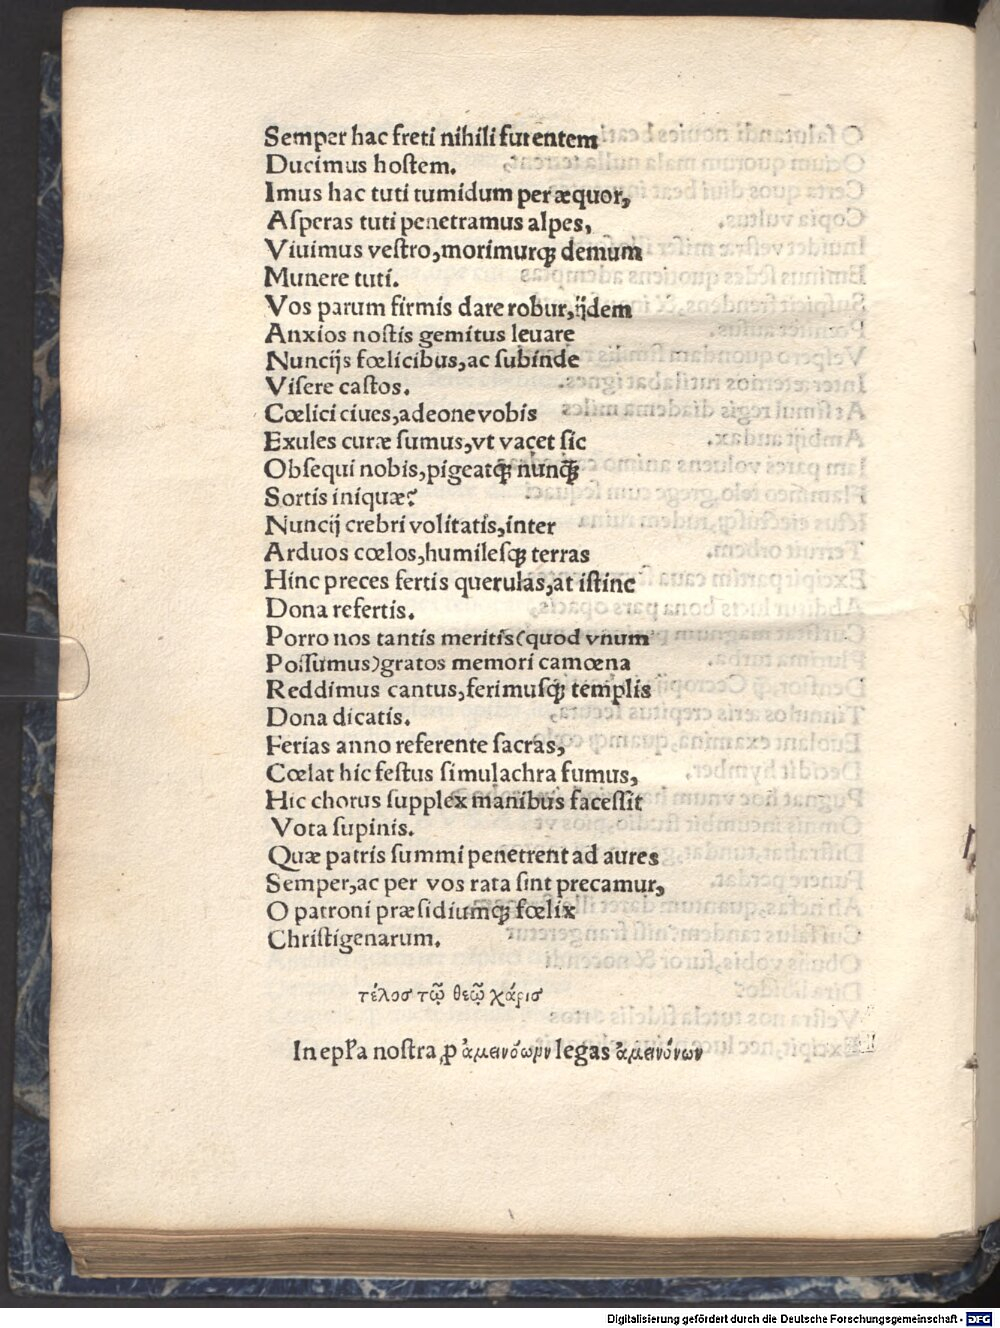 Semper hac freti nihili furentem
Ducimus hoſtem.
Imus hac tuti tumidum per æquor,
Aſperas tuti penetramus alpes,
Viuimus veſtro,morimurꝗ demum
Munere tuti.
Vos parum firmis dare robur,ijdem
Anxios noſtis gemitus leuare
Nuncijs fœlicibus,ac ſubinde
Viſere caſtos.
Cœlici ciues,adeone vobis
Exules curæ ſumus,vt vacet ſic
Obſequi nobis,pigeatꝗ nunꝗ̃
Sortis iniquæ?
Nuncij crebri volitatis,inter
Arduos cœlos,humileſꝗ terras
Hinc preces fertis querulas,at iſtinc
Dona refertis.
Porro nos tantis meritis(quod vnum
Poſſumus)gratos memori camœna
Reddimus cantus,ferimuſꝗ templis
Dona dicatis.
Ferias anno referente ſacras,
Cœlat hic feſtus ſimulachra fumus,
Hic chorus ſupplex manibus faceſſit
Vota ſupinis.
Quæ patris ſummi penetrent ad aures
Semper,ac per vos rata ſint precamur,
O patroni præſidiumꝗ fœlix
Chriſtigenarum.
τέλοσ τῶ θεῶ χάρισ
In epľa noſtra ꝓ legas
Digitalisierung gefördert durch die Deutsche Forschungsgemeinschaft - DFG